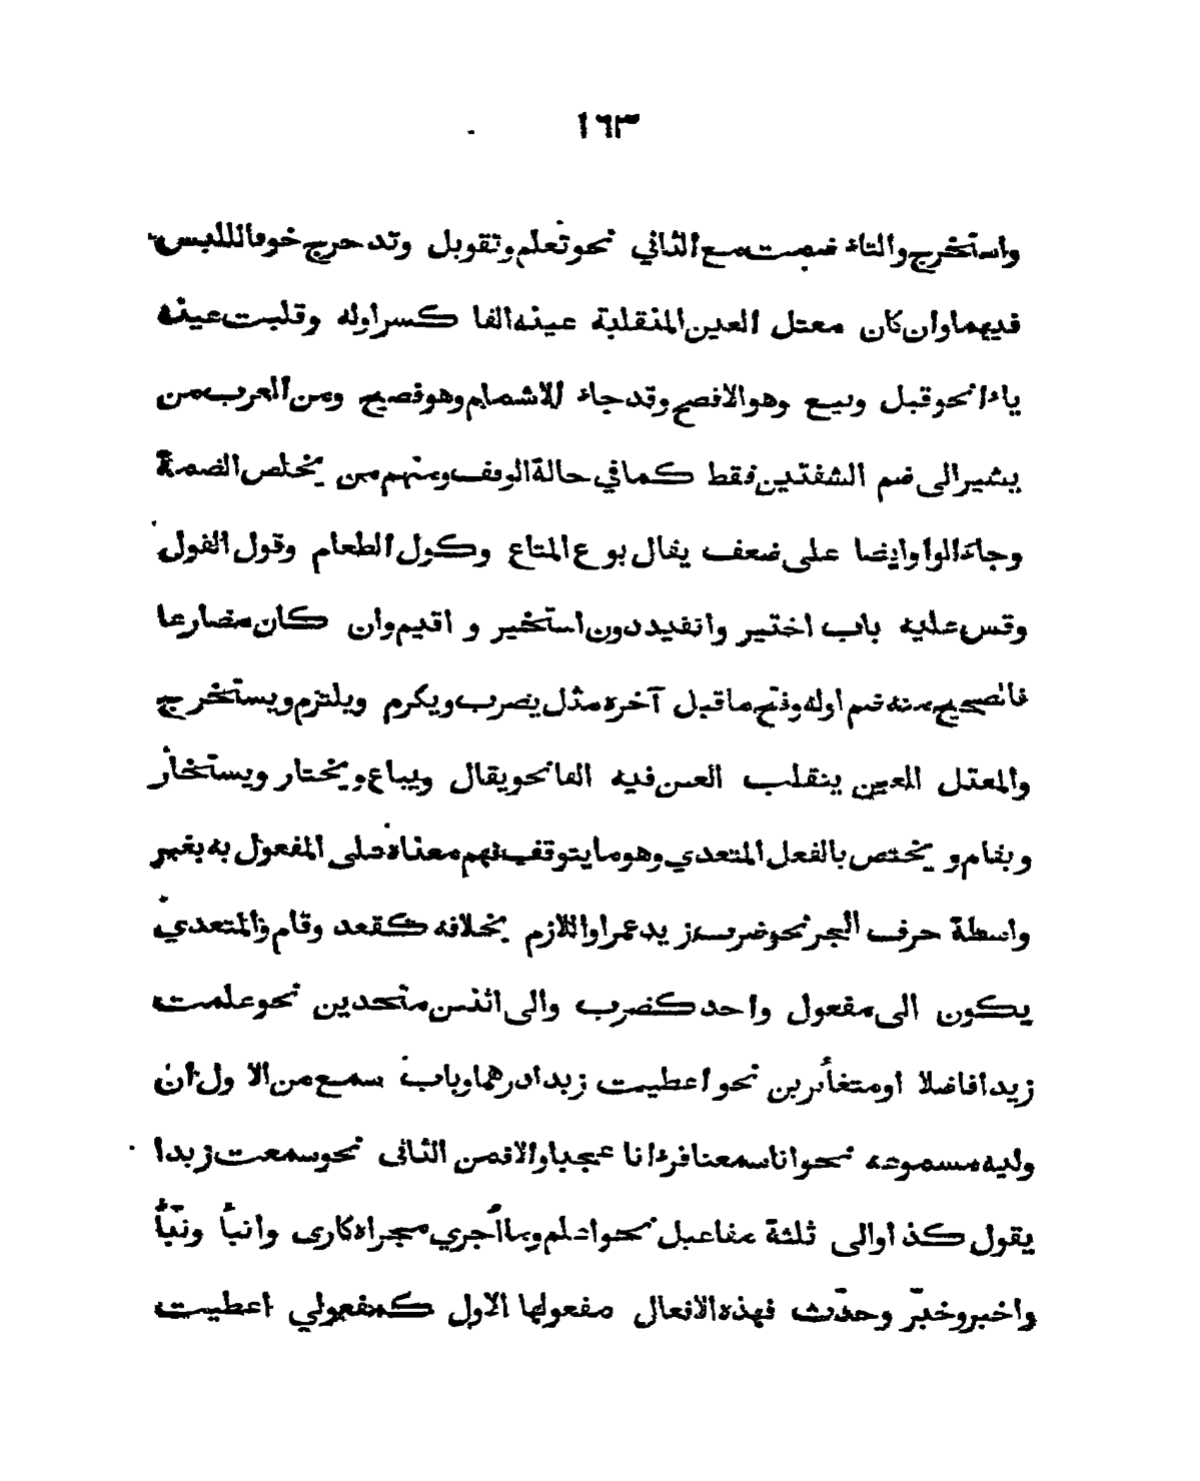 ١٦٣
واستخرج والتاء ضمت مع الثاني نحو تعلم وتقوبل وتدحرج خوفا للبس
فيهما وان كان معتل العين المنقلبة عينه الفا كسر اوله وقلبت عينه
ياءا نحو قيل وبيع وهو الافصح وقد جاء للاشمام وهو فصيح ومن العرب من
يشير الى ضم الشفتين فقط كما في حالة الوقف ومنهم من يخلص الضمة
وجاء الواو ايضا على ضعف يقال بوع المتاع وكول الطعام وقول القول
وقس عليه باب اختير وانقيد دون استخير و اقيم وان كان مضارعا
فالصحيح منه ضم اوله وفتح ما قبل آخره مثل يضرب ويكرم ويلتزم ويستخرج
والمعتل العين ينقلب العين فيه الفا نحو يقال ويباع ويختار ويستخار
ويقام و يختص بالفعل المتعدي وهو ما يتوقف فهم معناه على المفعول به بغير
واسطة حرف الجر نحو ضرب زيد عمرا واللازم بخلافه كقعد وقام والمتعدي
يكون الى مفعول واحد كضرب والى اثنين متحدين نحو علمت
زيدا فاضلا او متغايرين نحو اعطيت زيدا درهما وباب سمع من الاول ان
وليه مسموعه نحو انا سمعنا قرءانا عجبا والا فمن الثاني نحو سمعت زيدا
يقول كذا والى ثلثة مفاعيل نحو اعلم وما أجري مجراه كارى وانبأ ونبّأ
واخبر وخبّر وحدّث فهذه الافعال مفعولها الاول كمفعولي اعطيت